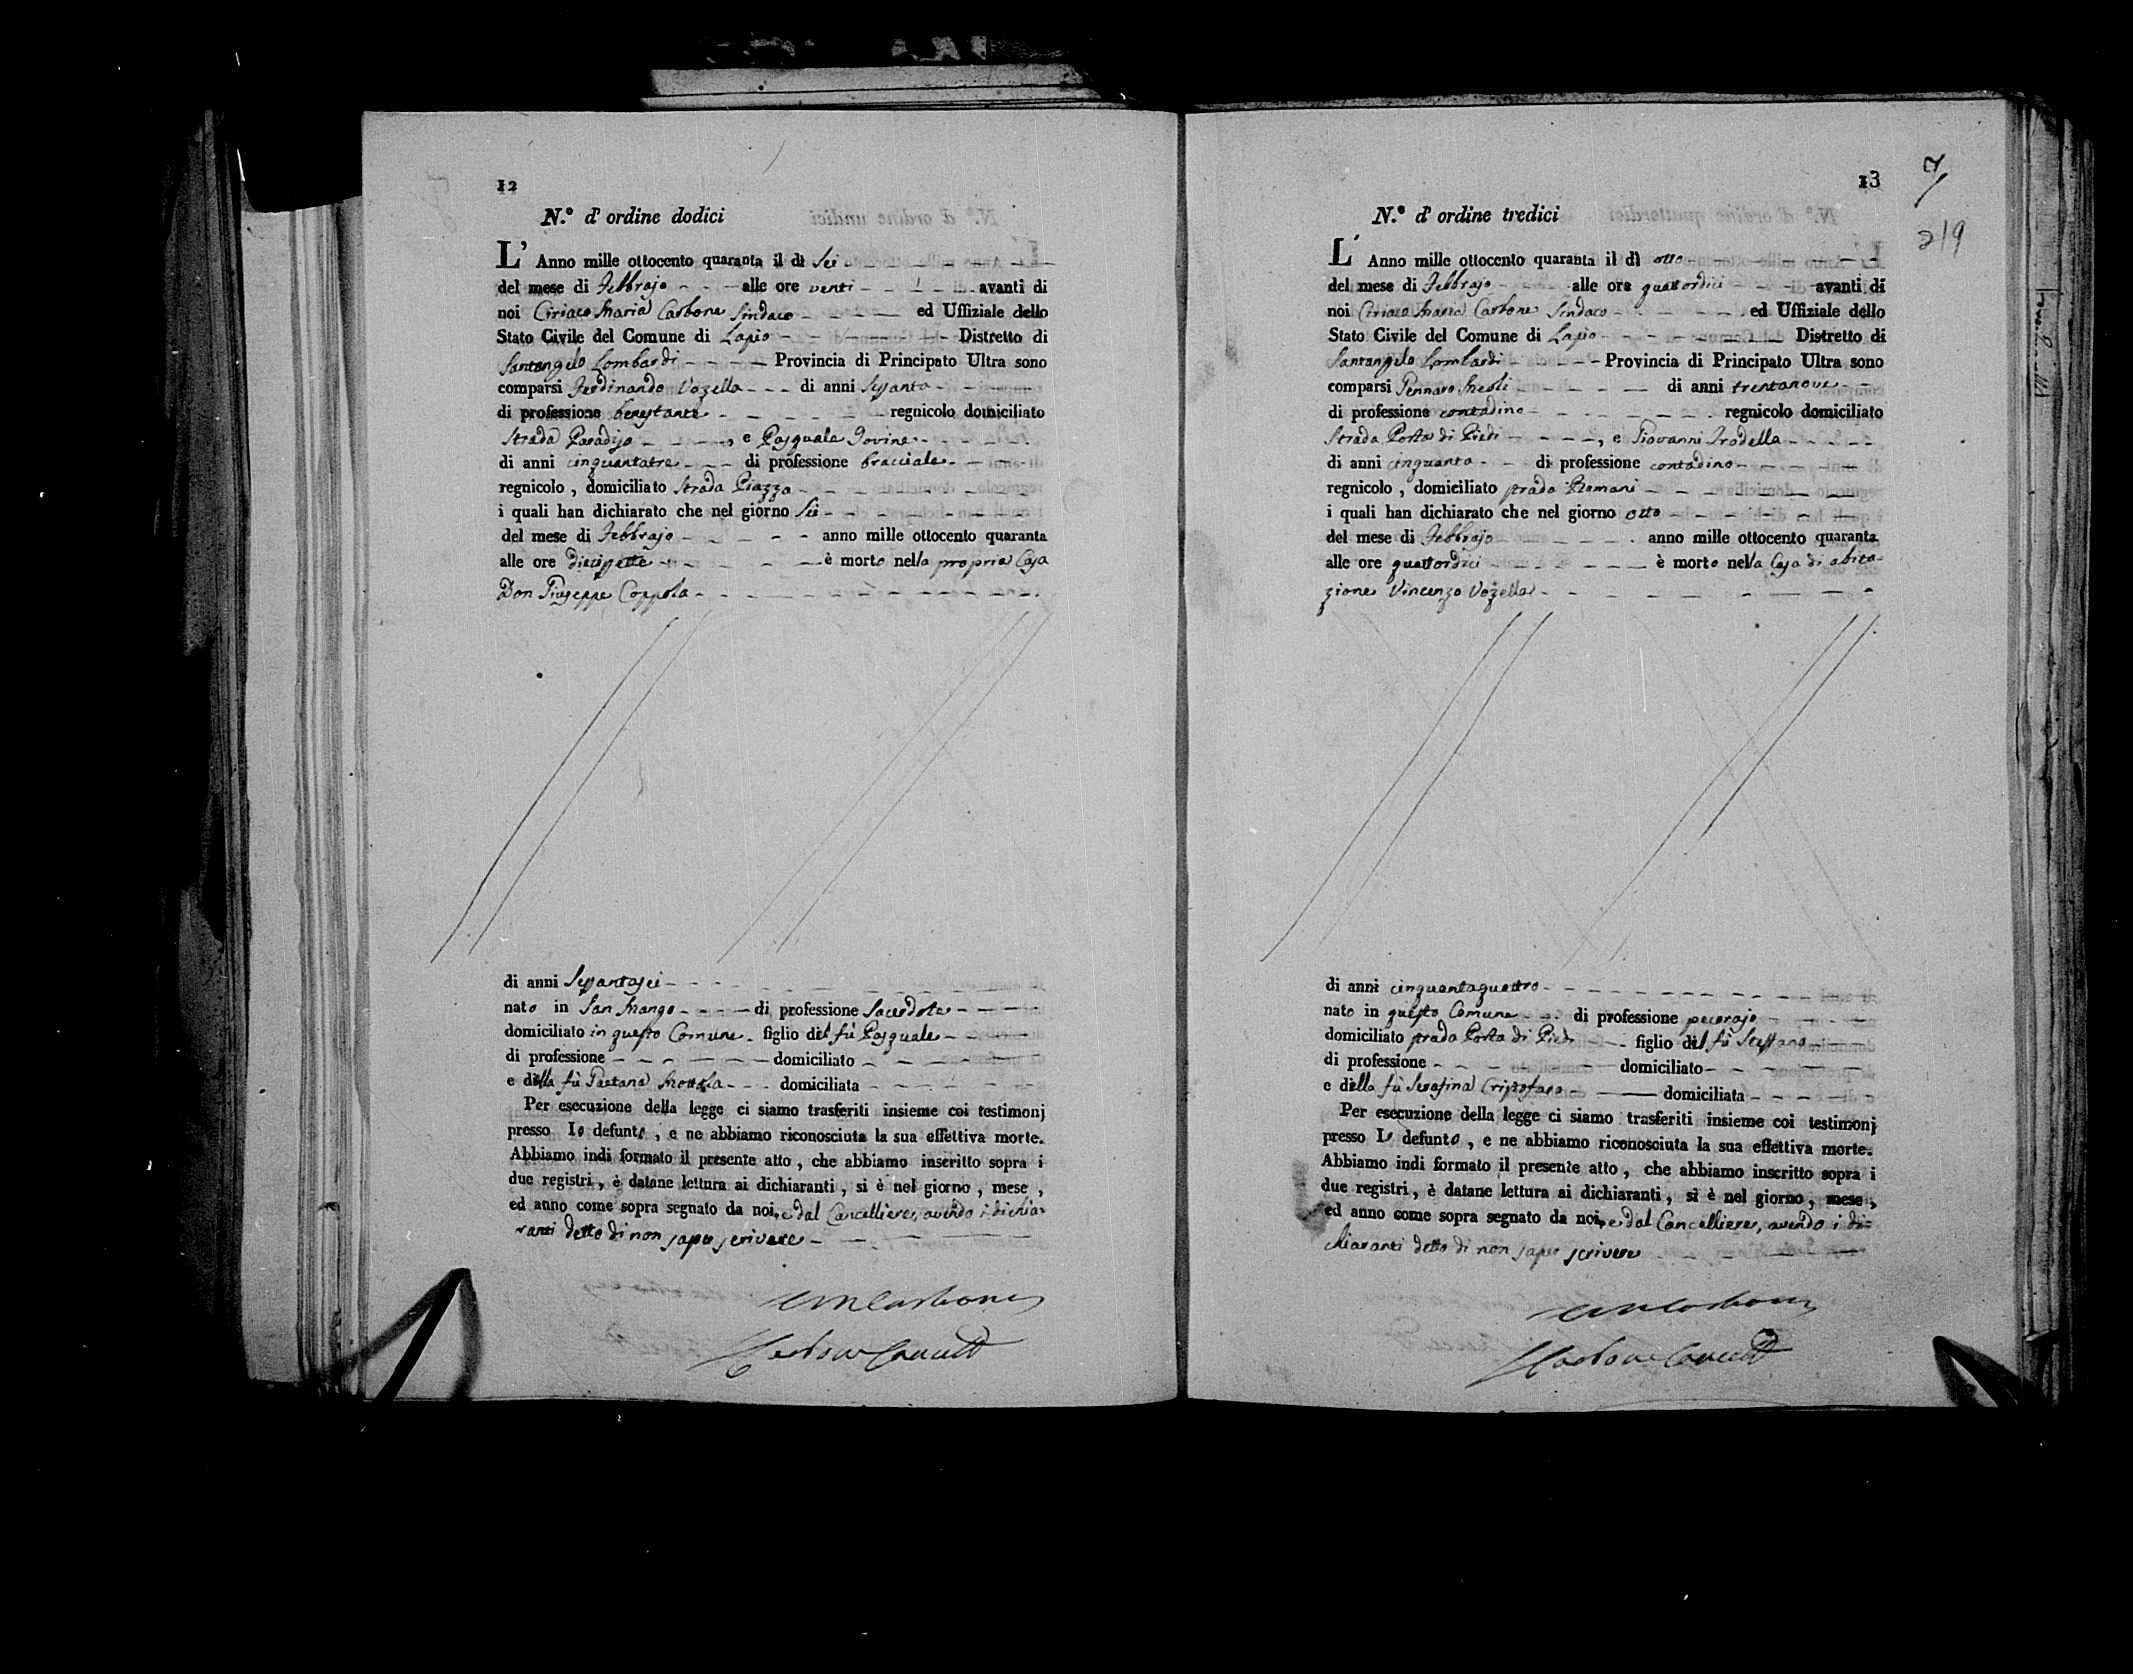 12
N.° d' ordine dodici
L' Anno mille ottocento quaranta il dì sei
del mese di Febbrajo alle ore venti avanti di
noi Ciriaco Maria Carbone Sindaco ed Uffiziale dello
Stato Civile del Comune di Lapio Distretto di
Santangelo Lombardi Provincia di Principato Ultra sono
comparsi Ferdinando Vozella di anni sessanta
di professione benestante regnicolo domiciliato
Strada Paradiso , e Pasquale Iovine
di anni cinquantatre di professione bracciale
regnicolo , domiciliato Strada Piazza
i quali han dichiarato che nel giorno sei
del mese di Febbrajo anno mille ottocento quaranta
alle ore diecissette è morto nella propria Casa
Don Giuseppe Coppola
di anni sessantasei
nato in San Mango di professione Sacerdote
domiciliato in questo Comune figlio del fù Pasquale
di professione domiciliato
e della fù Gaetana domiciliata
Per esecuzione della legge ci siamo trasferiti insieme coi testimonj
presso lo defunto , e ne abbiamo riconosciuta la sua effettiva morte.
Abbiamo indi formato il presente atto , che abbiamo inscritto sopra i
due registri , è datane lettura ai dichiaranti , si è nel giorno , mese ,
ed anno come sopra segnato da noi, e dal Cancelliere, avendo i dichia-
ranti detto di non saper scrivere
CMCarbone
Carbone Cancell
13
7
219
N.° d' ordine tredici
L' Anno mille ottocento quaranta il dì otto
del mese di Febbrajo alle ore quattordici avanti di
noi Ciriaco Maria Carbone Sindaco ed Uffiziale dello
Stato Civile del Comune di Lapio Distretto di
Santangelo Lombardi Provincia di Principato Ultra sono
comparsi Gennaro Meoli di anni trentanove
di professione contadino regnicolo domiciliato
Strada Porta di Piedi , e Giovanni Trodella
di anni cinquanta di professione contadino
regnicolo , domiciliato strada Romani
i quali han dichiarato che nel giorno otto
del mese di Febbrajo anno mille ottocento quaranta
alle ore quattordici è morto nella Casa di abita-
zione Vincenzo Vozella
di anni cinquantaquattro
nato in questo Comune di professione pecorajo
domiciliato strada Porta di Piedi figlio del fù Steffano
di professione domiciliato
e della fù Serafina domiciliata
Per esecuzione della legge ci siamo trasferiti insieme coi testimonj
presso lo defunto , e ne abbiamo riconosciuta la sua effettiva morte.
Abbiamo indi formato il presente atto , che abbiamo inscritto sopra i
due registri , è datane lettura ai dichiaranti , si è nel giorno , mese ,
ed anno come sopra segnato da noi, e dal Cancelliere, avendo i di=
chiaranti detto di non saper scrivere
CMCarbone
Carbone Cancell